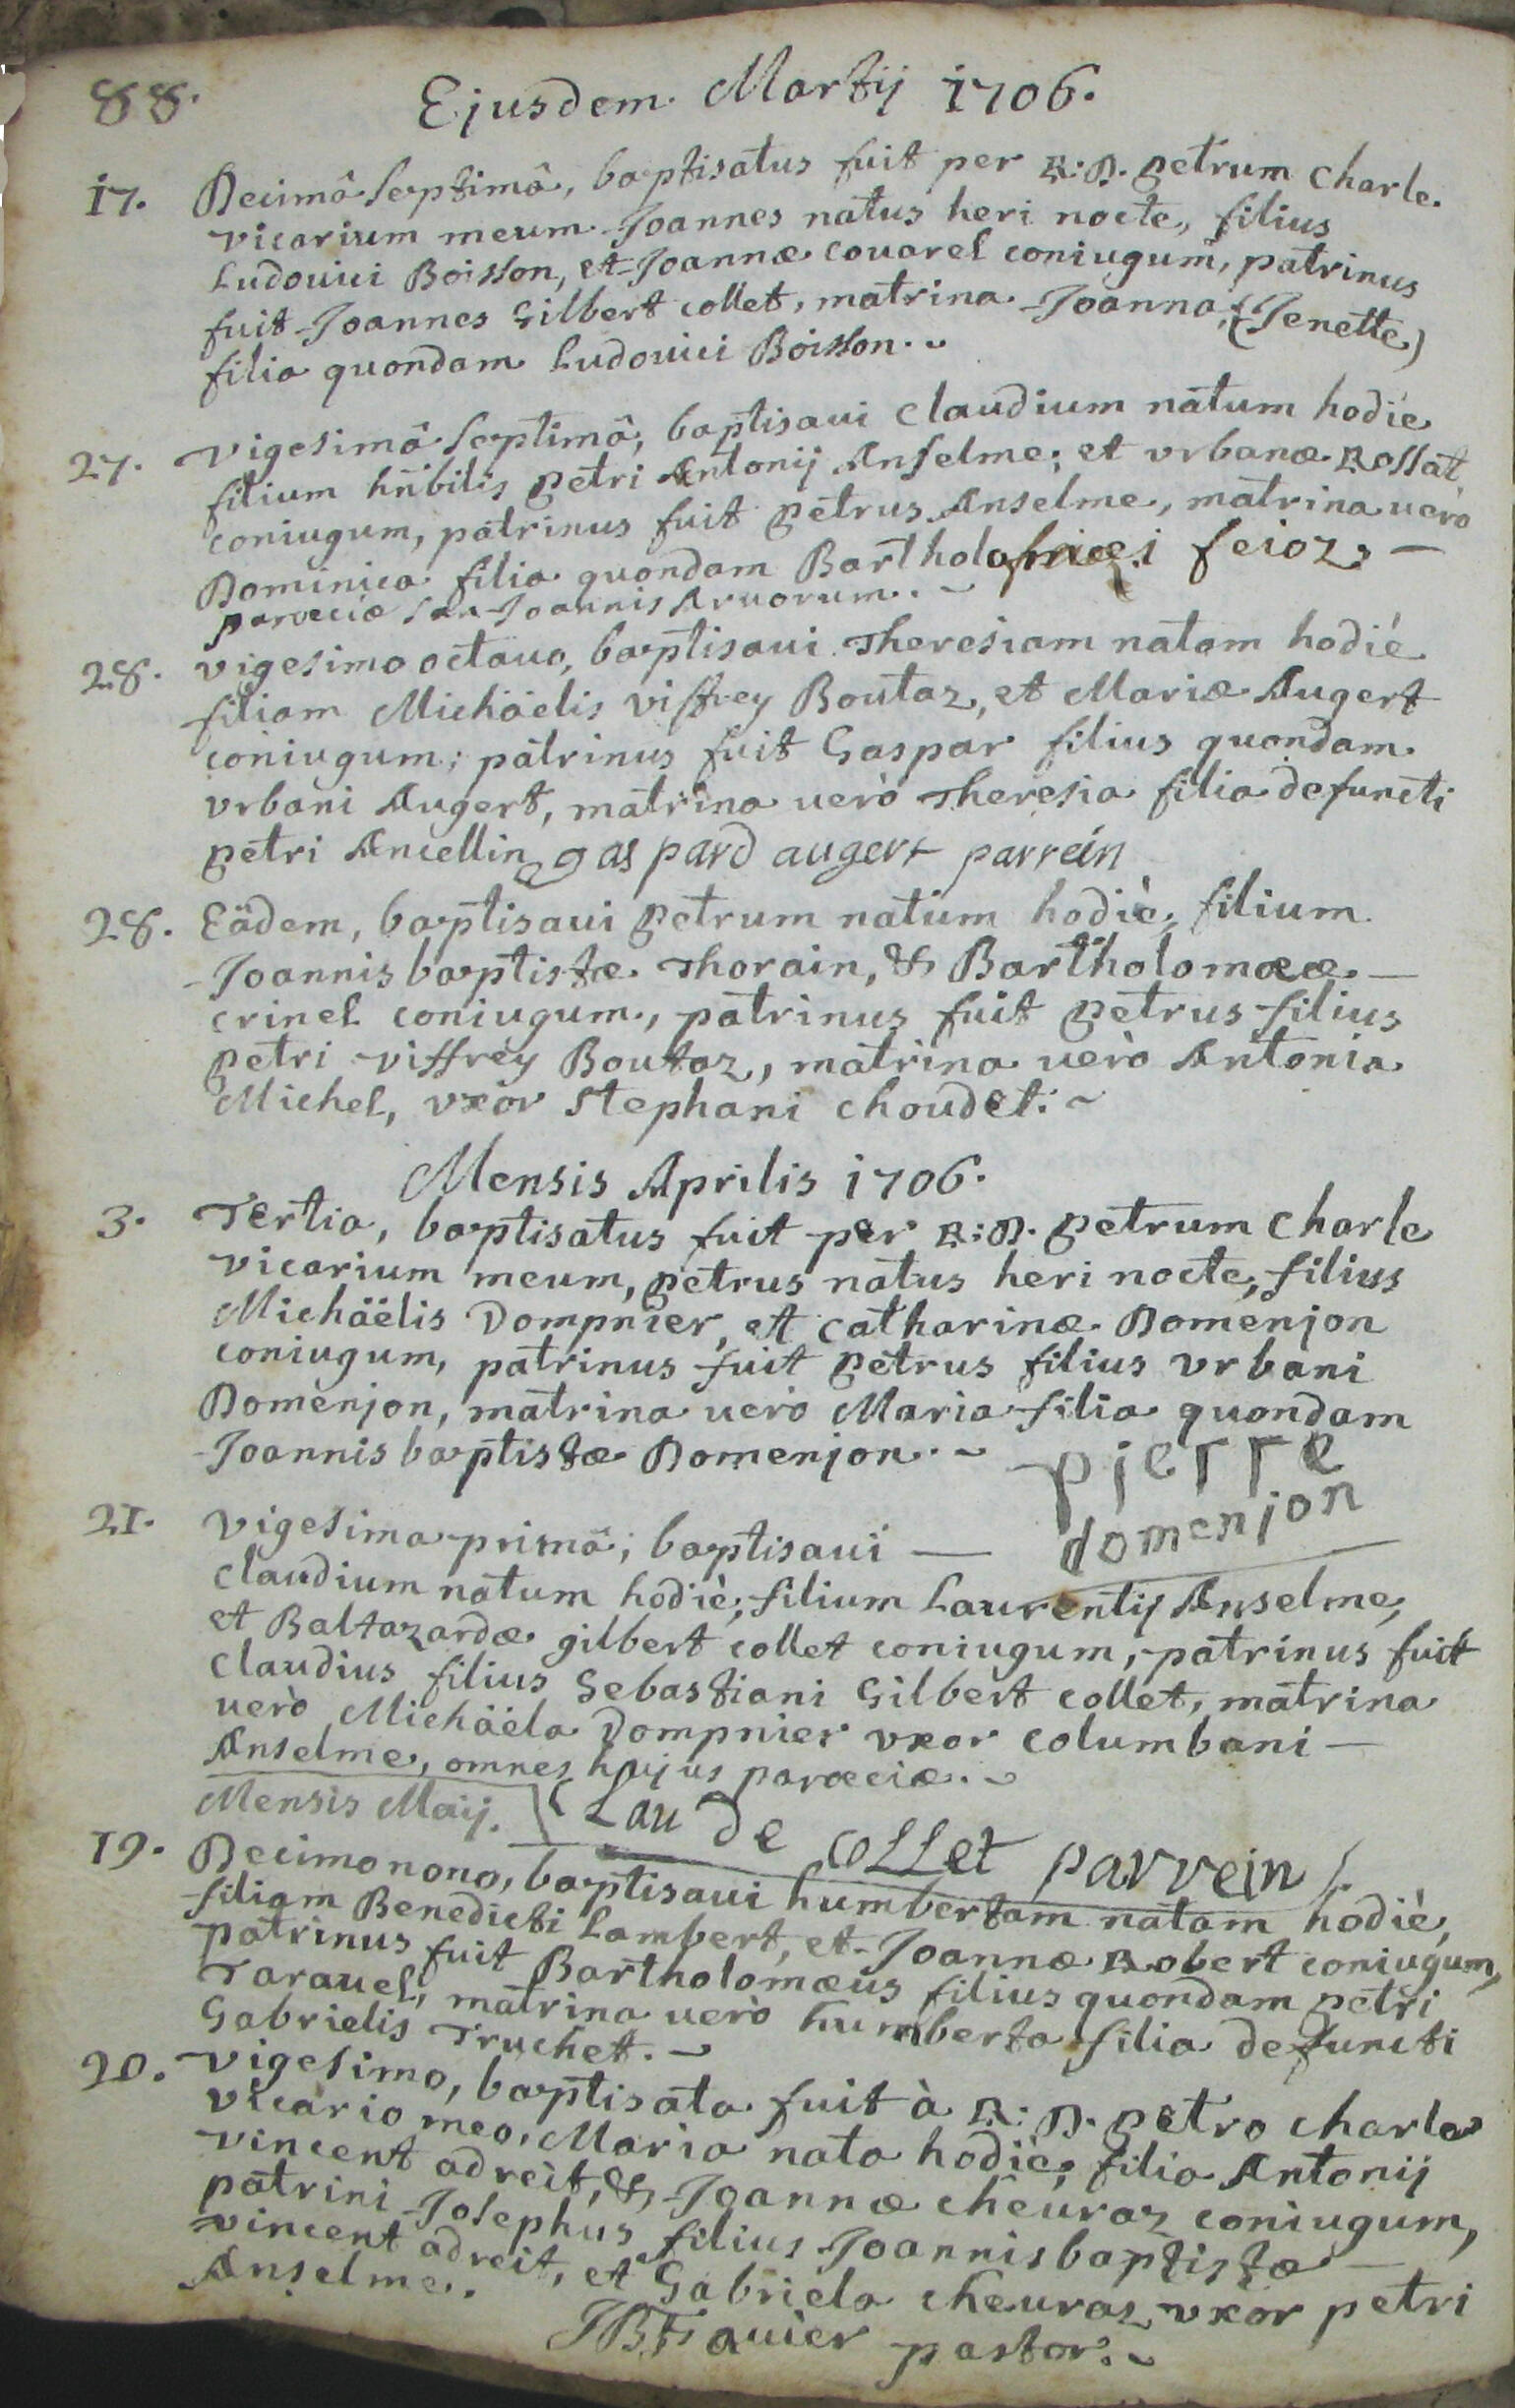 88. Ejusdem Martij 1706.
17. Decimâ septimâ, baptisatus fuit per R: D. petrum charle
vicarium meum Joannes natus heri nocte, filius
Ludouici Boisson, et Joannæ couarel coniugum, patrinus
fuit Joannes Gilbert collet, matrina Joanna, (Jenette)
filia quondam Ludouici Boisson.
27. vigesimâ septimâ, baptisaui claudium natum hodie
filium hñbilis petri Antonij Anselme; et vrbanæ Rossat
coniugum, patrinus fuit petrus Anselme, matrina uerò
Dominica filia quondam Bartholomæi feioz, —
paroeciæ San Joannis Aruorum.
28. vigesimo octauo, baptisaui Theresiam natam hodiè
filiam Michäelis viffrey Boutaz, et Mariæ Augert
coniugum; patrinus fuit Gaspar filius quondam
vrbani Augert, matrina uerò Theresia filia defuncti
petri Ancellin gaspard augert parrein
28. Eädem, baptisaui petrum natum hodiè, filium
Joannis baptistæ Thorain, & Bartholomææ —
crinel coniugum, patrinus fuit petrus filius
petri viffrey Boutaz, matrina uerò Antonia
Michel, vxor stephani choudet.
Mensis Aprilis 1706.
3. Tertia, baptisatus fuit per R: D. petrum charle
vicarium meum, petrus natus heri nocte, filius
Michäelis Dompnier, et catharinæ Domenjon
coniugum, patrinus fuit petrus filius vrbani
Domenjon, matrina uerò Maria filia quondam
Joannis baptistæ Domenjon. pierre
domenjon
21. vigesima primâ, baptisaui —
claudium natum hodiè, filium Laurentij Anselme,
et Baltazardæ gilbert collet coniugum, patrinus fuit
claudius filius Sebastiani Gilbert collet, matrina
uerò Michäela Dompnier vxor columbani —
Anselme, omnes hujus paroeciæ.
Mensis Maij. CLaude coLLet parrein
19. Decimo nono, baptisaui humbertam natam hodiè,
filiam Benedicti Lambert, et Joannæ Robert coniugum,
patrinus fuit Bartholomæus filius quondam petri
Tarauel, matrina uerò humberta filia defuncti
Gabrielis Truchet.
20. vigesimo, baptisata fuit à R: D. petro charle
vicario meo, Maria nata hodiè, filia Antonij
vincent adreit, & Joannæ cheuraz coniugum,
patrini Josephus filius Joannis baptistæ —
vincent adreit, et Gabriela cheuraz vxor petri
Anselme.
JB Fauier pastor.